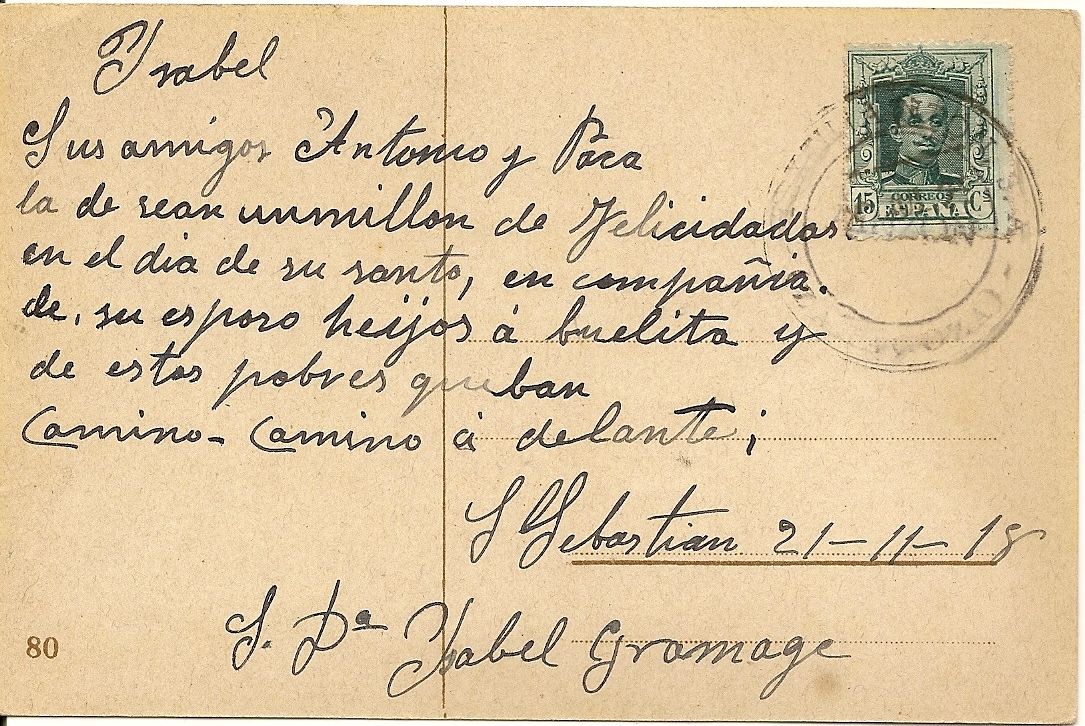 Ysabel
Sus amigos Antonio y Paca
la de sean unmillon de Felicidadas
en el dia de su santo, en compañia.
de, su esposo heijos á buelita y
de estos pobres queban
Camino- Camino á delante,
S Sebastian 21-11-18
S. Dª Ysabel Gramage
80
15 Cs
CORREOS
ESPAÑA